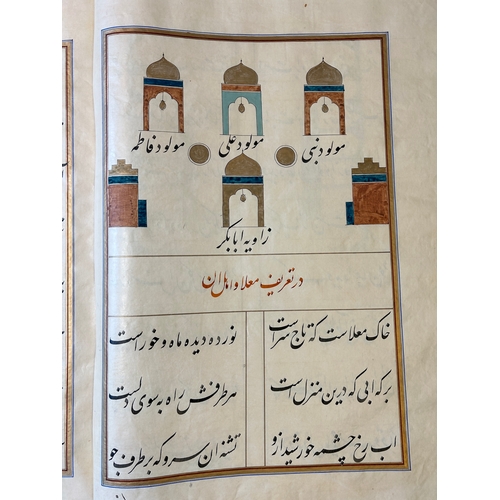 مولود نبی
مولود علی
مولود فاطمه
زاویه ابابکر
در تعریف معلا و اهل ان
خاک معلاست که تاج سراست
نور ده دیده ماه و خوراست
برکه ابی که درین منزل است
هر طرفش راه به سوی دلست
اب رخ چشمه خورشید ازو
تشنه ان سرو که بر طرف جو